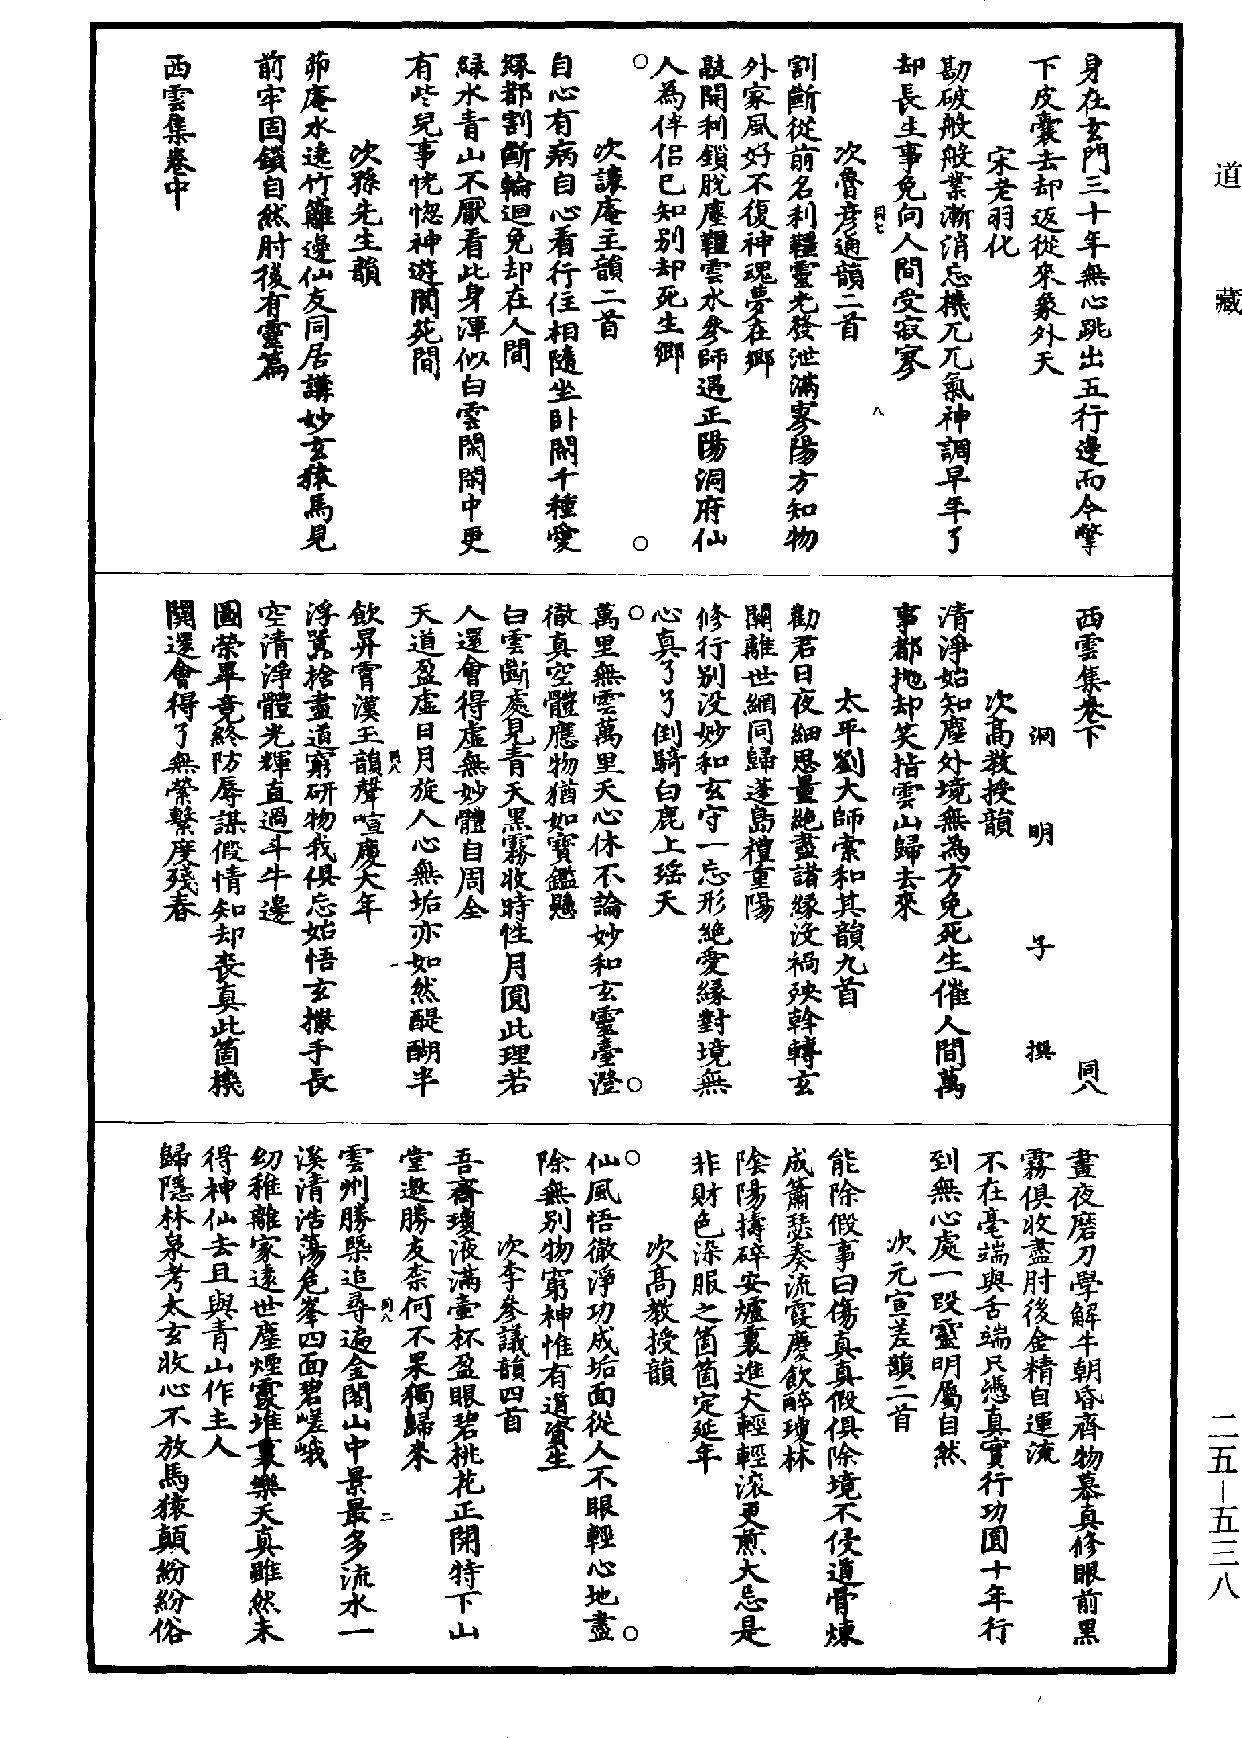 道藏
身在玄門三十年無心跳出五行邊而今撆
下皮囊去却返從來象外天
宋老羽化
勘破般般業漸消忘機兀兀氣神調早年了
却長生事免向人間受寂寥
同七
八
次魯彦通韻二首
割斷從前名利韁靈光發泄滿寥陽方知物
外家風好不復神魂夢在鄉
敲開利鎖脱塵韁雲水參師遇正陽洞府仙
人為伴侣已知别却死生鄉
次讓庵主韻二首
自心有病自心看行住相隨坐卧閑千種愛
緣都割斷輪迴免却在人間
緑水青山不厭看此身渾似白雲閑閑中更
有些兒事恍惚神遊閬苑間
次孫先生韻
茆庵水遶竹籬邊仙友同居講妙玄猿馬見
前牢固鎖自然肘後有靈篇
西雲集卷中
西雲集卷下
同八
洞明子撰
次高教授韻
清淨始知塵外境無為方免死生催人間萬
事都抛却笑指雲山歸去來
太平劉大師索和其韻九首
勸君日夜細思量絶盡諸緣没禍殃斡轉玄
關離世網同歸蓬島禮重陽
修行别没妙和玄守一忘形絶愛緣對境無
心真了了倒騎白鹿上瑶天
萬里無雲萬里天心休不論妙和玄靈臺澄
徹真空體應物猶如寶鑑懸
白雲斷處見青天黑霧收時性月圓此理若
人還會得虚無妙體自周全
天道盈虚日月旋人心無垢亦如然醍醐半
同八
一
飲昇霄漢玉韻聲喧慶大年
浮囂捨盡道窮研物我俱忘始悟玄撒手長
空清淨體光輝直過斗牛邊
圖榮畢竟終防辱謀假情知却喪真此箇機
關還會得了無縈繫度殘春
晝夜磨刀學解牛朝昏齊物慕真修眼前黑
霧俱收盡肘後金精自運流
不在毫端與舌端只憑真實行功圓十年行
到無心處一段靈明屬自然
次元宣差韻二首
能除假事曰傷真真假俱除境不侵道骨煉
成簫瑟奏流霞慶飲醉瓊林
陰陽擣碎安爐裏進火輕輕滚更煎大忌是
非財色染服之箇箇定延年
次高教授韻
仙風悟徹淨功成垢面從人不眼輕心地盡
除無别物窮神惟有道資生
次李參議韻四首
吾齋瓊液滿壷杯盈眼碧桃花正開特下山
堂邀勝友柰何不果獨歸來
同八
二
雲州勝槩追尋遍金閣山中景最多流水一
溪清浩蕩危峯四面碧嵯峨
幼稚離家遠世塵煙霞堆裏樂天真雖然未
得神仙去且與青山作主人
歸隱林泉考太玄收心不放馬猿顛紛紛俗
二五－五三八